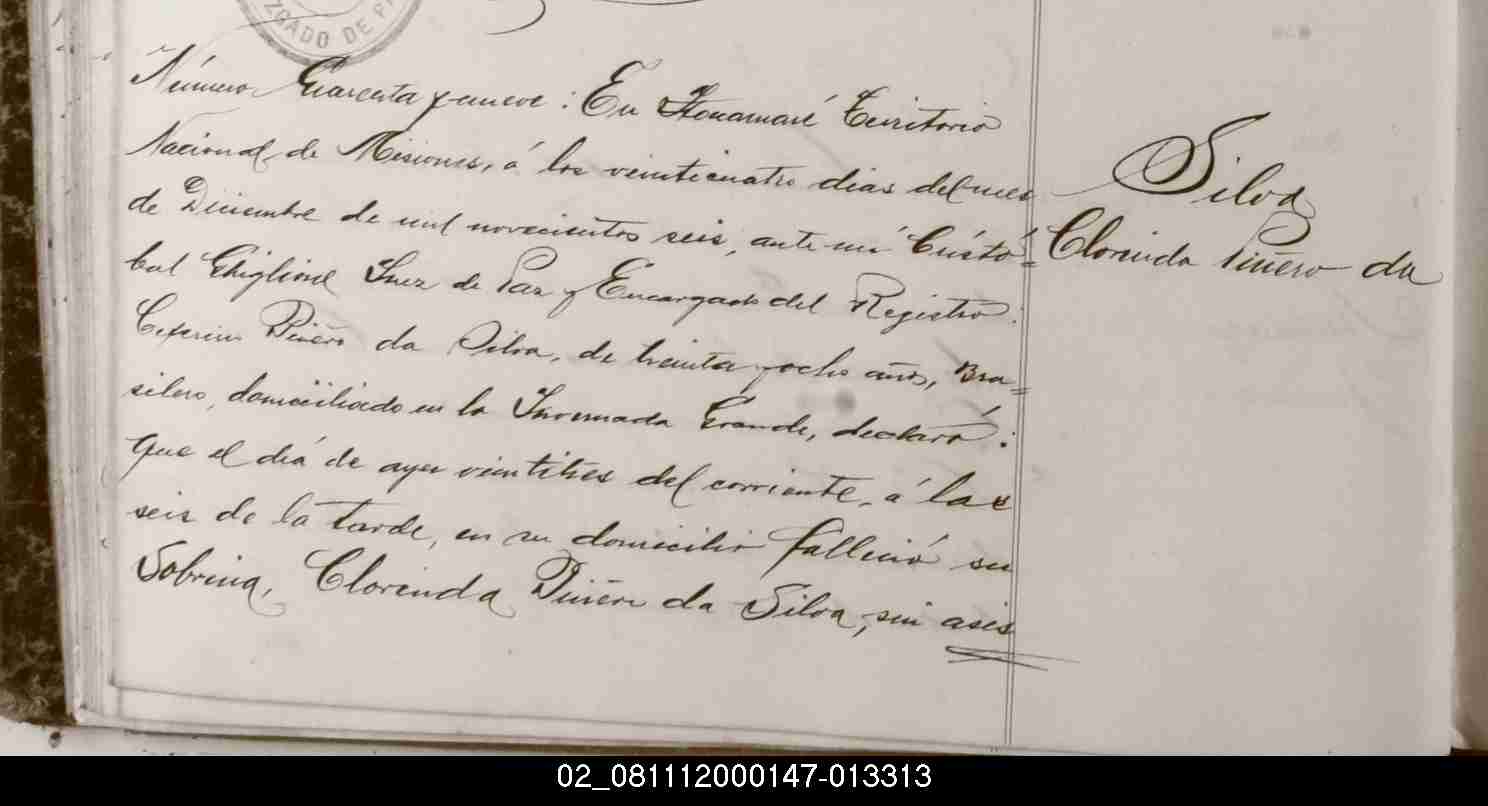 ZGADO DE P
Número Cuarenta y nueve: En Itonamaré Territorio
Nacional de Misiones, á los veinticuatro dias del mes
de Diciembre de mil novecientos seis, ante mi Cristó=
bal Ghiglione Juez de Paz y Encargado del Registro:
Ceferino Piñero da Silva, de treinta y ocho años, Bra=
silero, domiciliado en la Invernada Grande, declaró:
Que el día de ayer veintitres del corriente, á las
seis de la tarde, en su domicilio falleció su
Sobrina, Clorinda Piñero da Silva, sin asis
Silva
Clorinda Piñero da
02_081112000147-013313